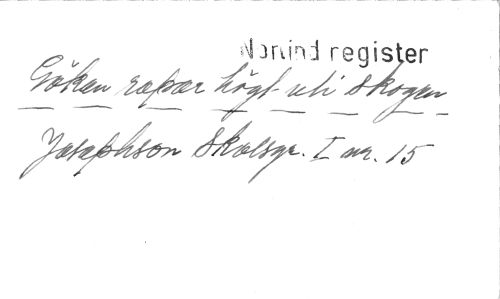 Nonind register
Göken ropar högt uti skogen
Josephson Skolsgr. I nr. 15